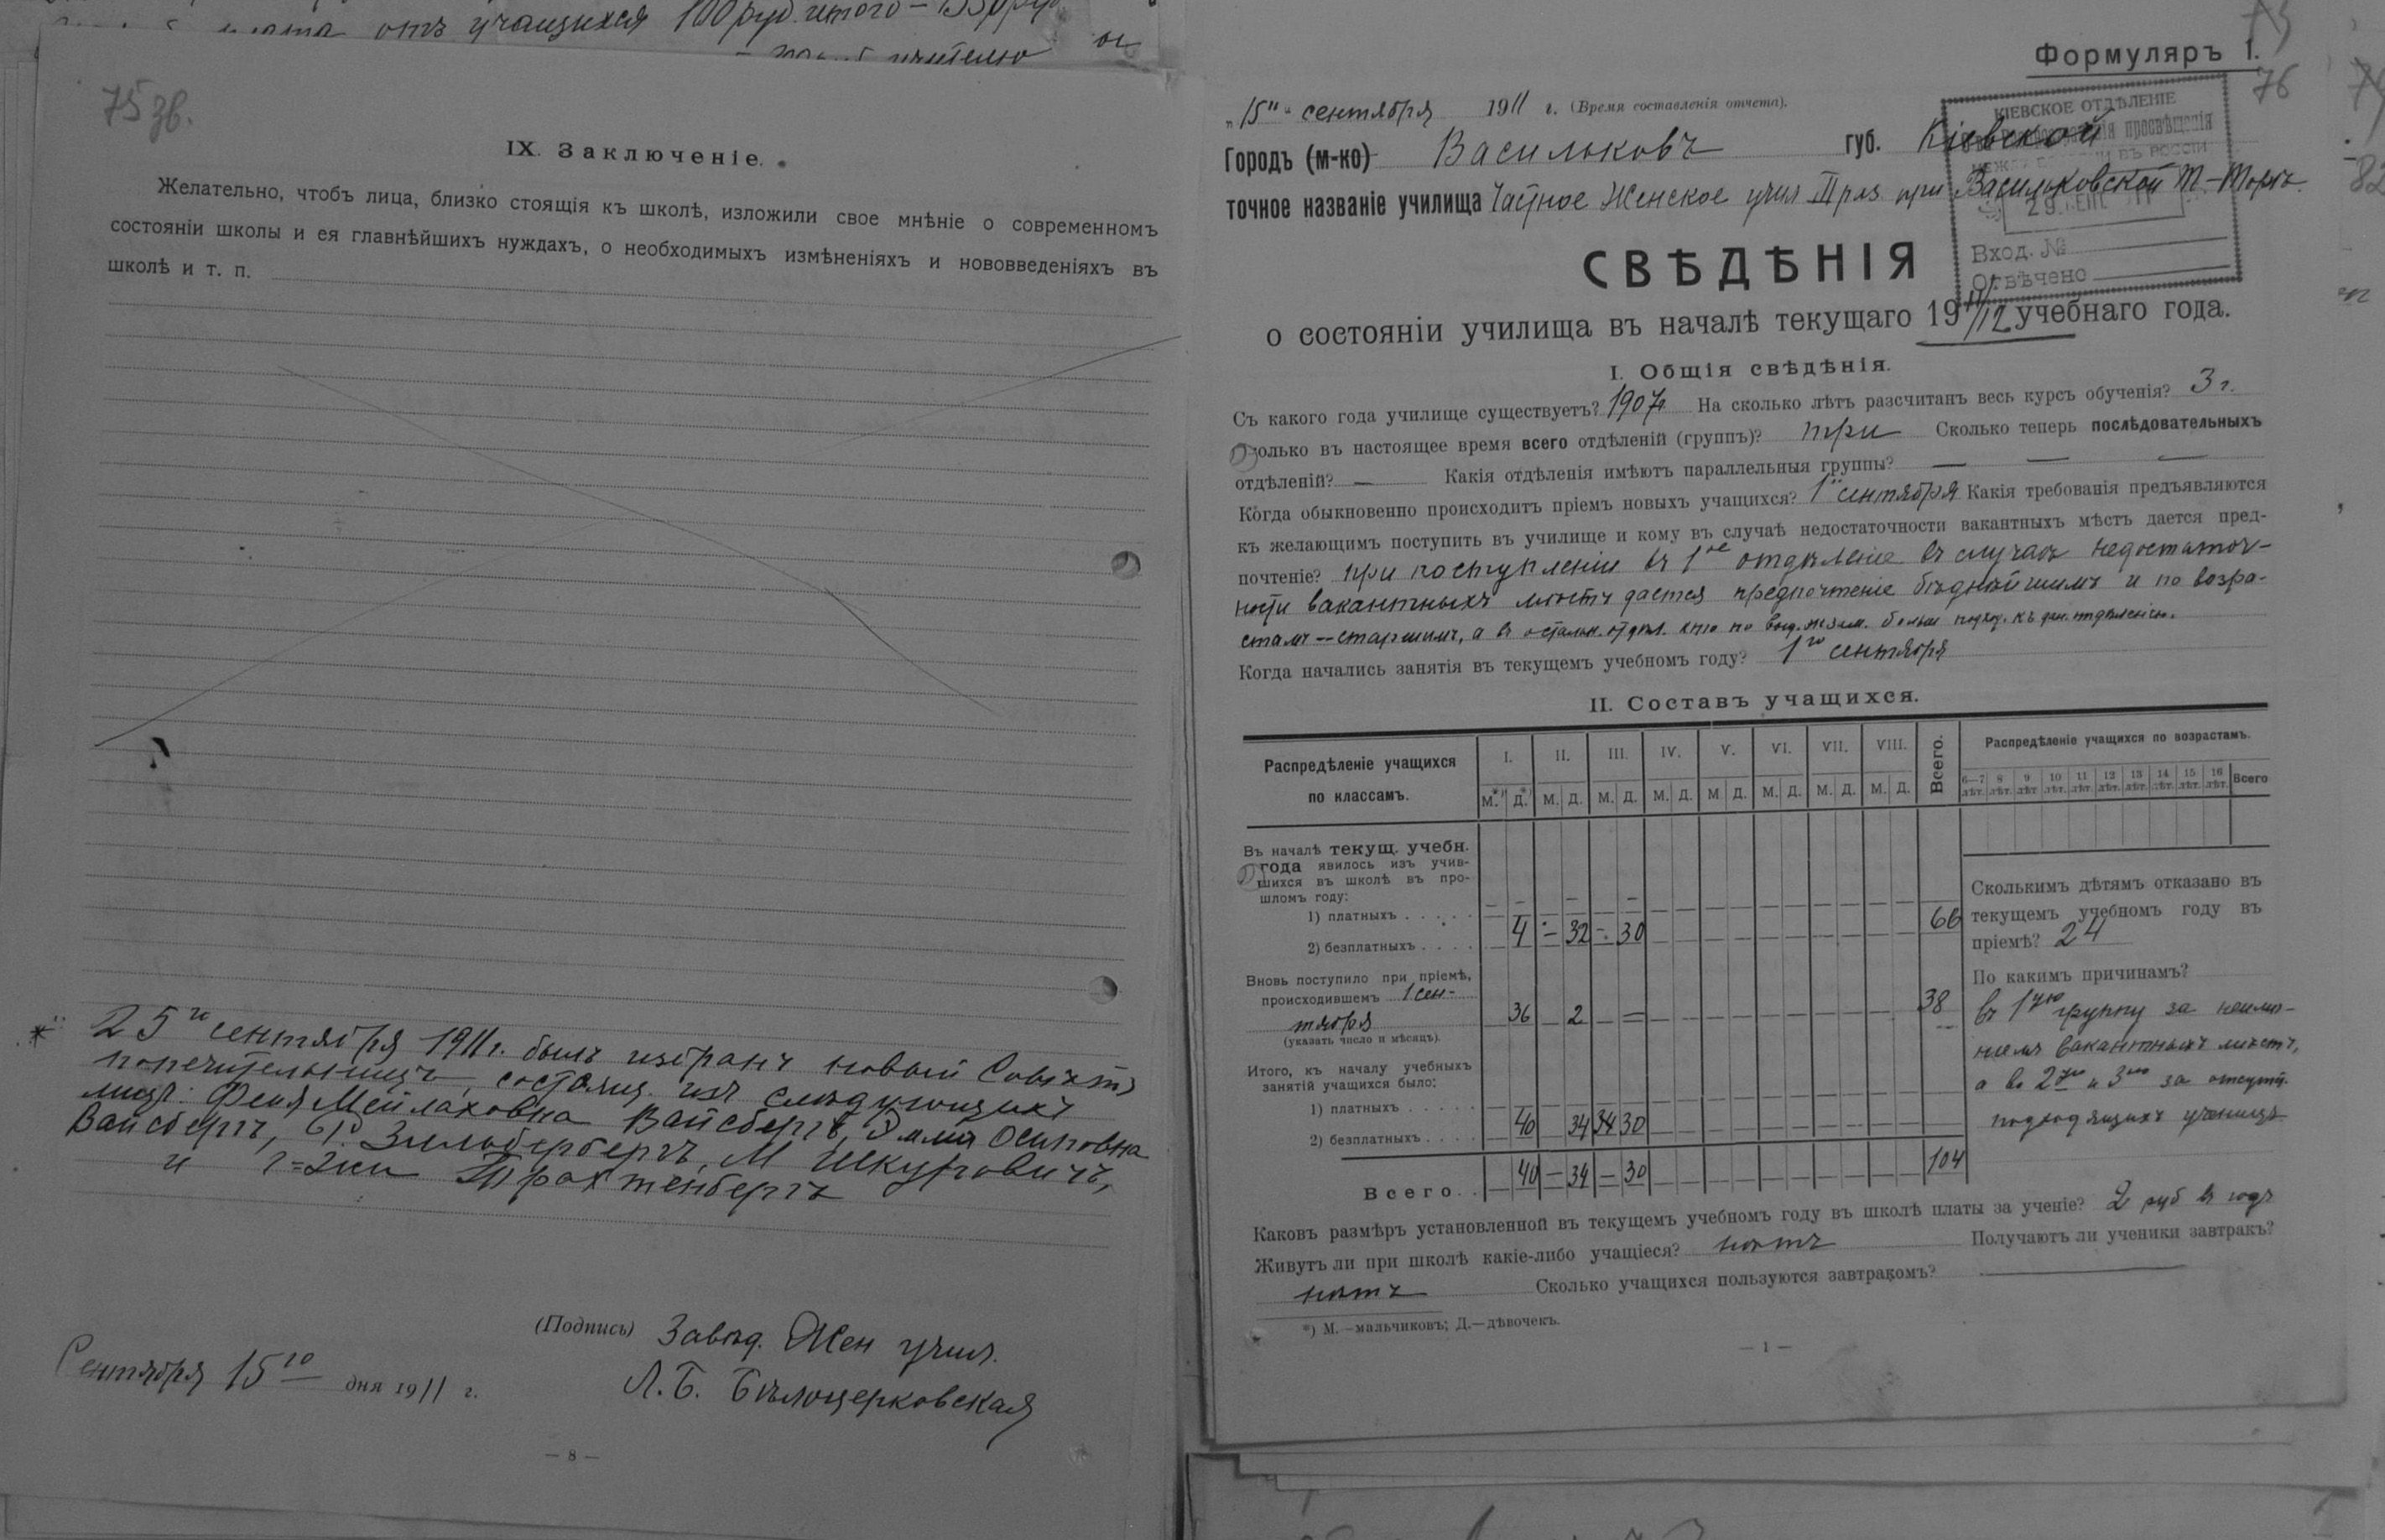 отъ учащихся 100 руб. итого – 
учителю
75 зв.
IX. Заключеніе.
Желательно, чтобъ лица, близко стоящія къ школѣ, изложили свое мнѣніе о современномъ
состояніи школы и ея главнѣйшихъ нуждахъ, о необходимыхъ измѣненіяхъ и нововведеніяхъ въ
школѣ и т. п.
25го сентября 1911 г. былъ избранъ новый Совѣтъ
попечительницъ, состоящ. изъ слѣдующихъ
лицъ: Феня Мейлаховна Вайсбергъ, Осиповна
Вайсбергъ, Г. Зильбербергъ, М Шкуровичъ,
и г-жи Трахтенбергъ
(Подпись) Завѣд. Жен учил.
Л. Б. Бѣлоцерковская
Сентября 15го дня 1911 г.
— 8 —
Формуляръ 1.
76
КІЕВСКОЕ ОТДѢЛЕНІЕ
просвѣщенія
ВЪ РОССІИ
Вход. №
Отвѣчено
„15" сентября 1911 г. (Время составленія отчета).
Городъ (м-ко) Васильковъ губ. Кіевской
точное названіе училища Частное Женское учил III раз. при Васильковской Т.-Торѣ.
СВѢДѢНІЯ
о состояніи училища въ началѣ текущаго 1911/12 учебнаго года.
I. Общія свѣдѣнія.
Съ какого года училище существуетъ? 1907 г. На сколько лѣтъ разсчитанъ весь курсъ обученія? 3 г.
Сколько въ настоящее время всего отдѣленій (группъ)? три Сколько теперь послѣдовательныхъ
отдѣленій? — Какія отдѣленія имѣютъ параллельныя группы? — — —
Когда обыкновенно происходитъ пріемъ новыхъ учащихся? 1го сентября Какія требованія предъявляются
къ желающимъ поступить въ училище и кому въ случаѣ недостаточности вакантныхъ мѣстъ дается пред-
почтеніе? при поступленіи въ 1ое отдѣленіе въ случаѣ недостаточ-
ности вакантныхъ мѣстъ дается предпочтеніе бѣднѣйшимъ и по возра-
стамъ — старшимъ, а въ остальн. отдѣл. кто по больш подход. къ отдѣленію.
Когда начались занятія въ текущемъ учебномъ году? 1го сентября
II. Составъ учащихся.
Распредѣленіе учащихся по классамъ. I. II. III. IV. V. VI. VII. VIII. Всего.
М.*) Д.*) М. Д. М. Д. М. Д. М Д. М. Д. М. Д. М. Д.
Распредѣленіе учащихся по возрастамъ.
6—7 лѣт. 8 лѣт. 9 лѣт 10 лѣт. 11 лѣт. 12 лѣт. 13 лѣт. 14 лѣт. 15 лѣт. 16 лѣт. Всего
Въ началѣ текущ. учебн.
года явилось изъ учив-
шихся въ школѣ въ про-
шломъ году:
1) платныхъ . . . . .
2) безплатныхъ . . . . 4 – 32 – 30 66
Вновь поступило при пріемѣ,
происходившемъ 1 сен-
тября 36 – 2 – — 38
(указать число и мѣсяцъ).
Итого, къ началу учебныхъ
занятій учащихся было:
1) платныхъ . . . . .
2) безплатныхъ . . . . 40 34 34 30
Всего . . 40 — 34 — 30 104
Сколькимъ дѣтямъ отказано въ
текущемъ учебномъ году въ
пріемѣ? 24
По какимъ причинамъ?
въ 1ую группу за неимѣ-
ніемъ вакантныхъ мѣстъ,
а во 2ую и 3ью за отсутст.
подходящихъ ученицъ
Каковъ размѣръ установленной въ текущемъ учебномъ году въ школѣ платы за ученіе? 2 руб въ годъ
Живутъ ли при школѣ какіе-либо учащіеся? нѣтъ Получаютъ ли ученики завтракъ?
нѣтъ Сколько учащихся пользуются завтракомъ? —
*) М.—мальчиковъ; Д.—дѣвочекъ.
— 1 —